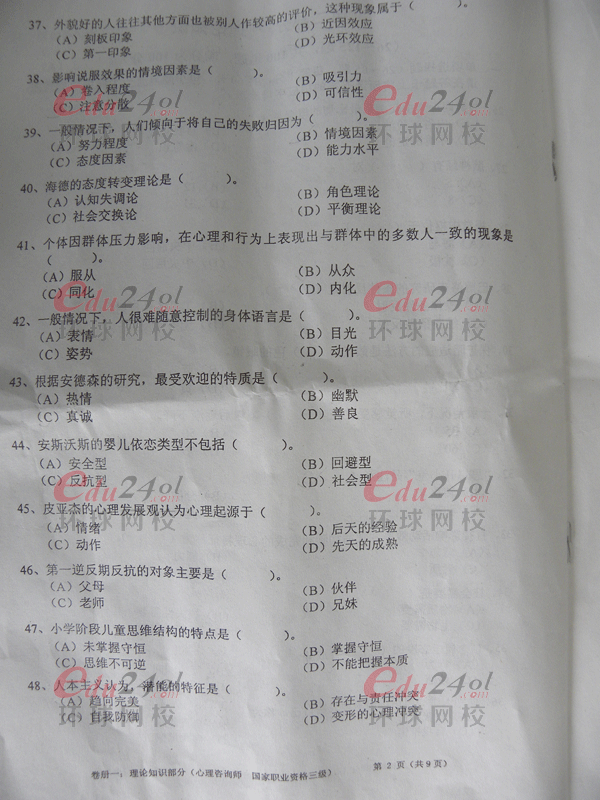 37、外貌好的人往往其他方面也被别人作较高的评价，这种现象属于（　　）。
（A）刻板印象　（B）近因效应
（C）第一印象　（D）光环效应
38、影响说服效果的情境因素是（　　）。
（A）卷入程度　（B）吸引力
（C）注意分散　（D）可信性
39、一般情况下，人们倾向于将自己的失败归因为（　　）。
（A）努力程度　（B）情境因素
（C）态度因素　（D）能力水平
40、海德的态度转变理论是（　　）。
（A）认知失调论　（B）角色理论
（C）社会交换论　（D）平衡理论
41、个体因群体压力影响，在心理和行为上表现出与群体中的多数人一致的现象是
（　　）。
（A）服从　（B）从众
（C）同化　（D）内化
42、一般情况下，人很难随意控制的身体语言是（　　）。
（A）表情　（B）目光
（C）姿势　（D）动作
43、根据安德森的研究，最受欢迎的特质是（　　）。
（A）热情　（B）幽默
（C）真诚　（D）善良
44、安斯沃斯的婴儿依恋类型不包括（　　）。
（A）安全型　（B）回避型
（C）反抗型　（D）社会型
45、皮亚杰的心理发展观认为心理起源于（　　）。
（A）情绪　（B）后天的经验
（C）动作　（D）先天的成熟
46、第一逆反期反抗的对象主要是（　　）。
（A）父母　（B）伙伴
（C）老师　（D）兄妹
47、小学阶段儿童思维结构的特点是（　　）。
（A）未掌握守恒　（B）掌握守恒
（C）思维不可逆　（D）不能把握本质
48、人本主义认为，潜能的特征是（　　）。
（A）趋向完美　（B）存在与责任冲突
（C）自我防御　（D）变形的心理冲突
卷册一：理论知识部分（心理咨询师　国家职业资格三级）　第 2 页（共9页）
edu24ol.com
环球网校
edu24ol.com
环球网校
edu24ol.com
环球网校
edu24ol.com
环球网校
edu24ol.com
环球网校
edu24ol.com
环球网校
edu24ol.com
环球网校
edu24ol.com
环球网校